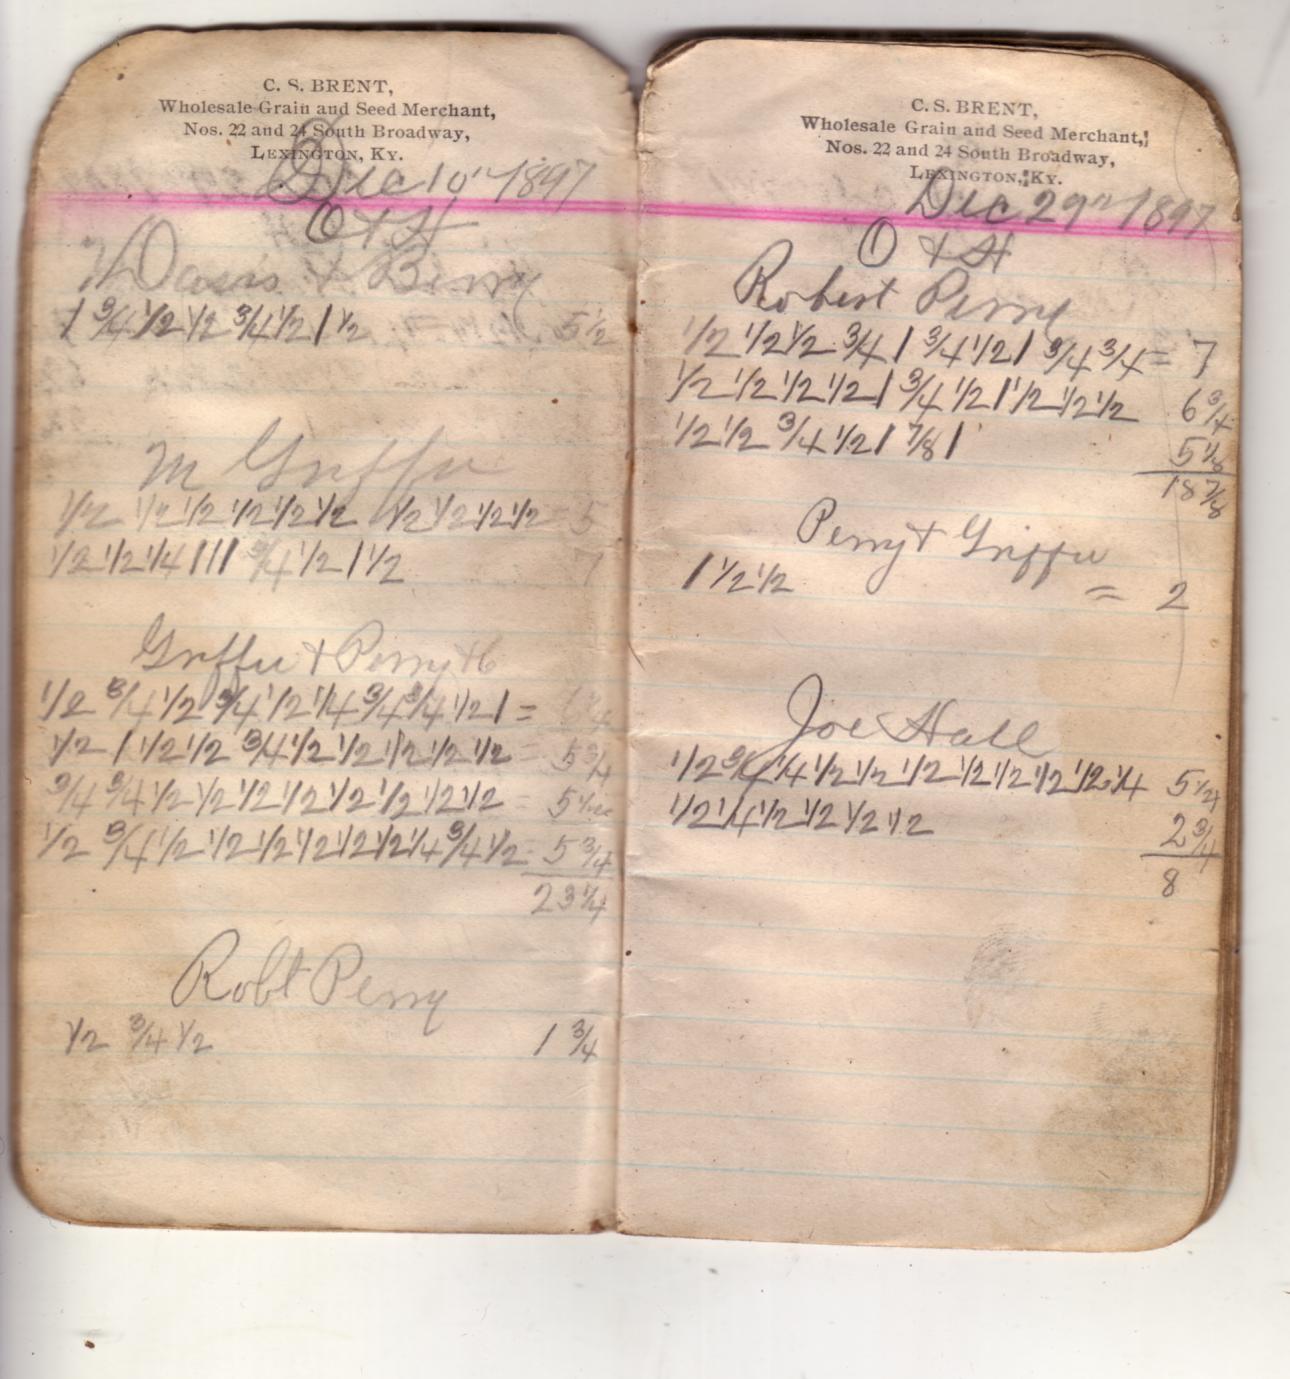 C. S. BRENT,
Wholesale Grain and Seed Merchant,
Nos. 22 and 24 South Broadway,
LEXINGTON, KY.
Dec 10" 1897
O & H
Davis & Berry
1 3/4 1/2 1/2 3/4 1/2 1 1/2 5 1/2
M Griffu
1/2 1/2 1/2 1/2 1/2 1/2 1/2 1/2 1/2 1/2 = 5
1/2 1/2 1/4 1 1 1 3/4 1/2 1 1/2 7
Griffu & Perry &
1/2 3/4 1/2 3/4 1/2 1/4 3/4 3/4 1/2 1 =
1/2 1 1/2 1/2 3/4 1/2 1/2 1/2 1/2 1/2 = 5 3/4
3/4 3/4 1/2 1/2 1/2 1/2 1/2 1/2 1/2 1/2 = 5 1/2
1/2 3/4 1/2 1/2 1/2 1/2 1/2 1/2 1/4 3/4 1/2 = 5 3/4
23 1/4
Robt Perry
1/2 3/4 1/2 1 3/4
C. S. BRENT,
Wholesale Grain and Seed Merchant,
Nos. 22 and 24 South Broadway,
LEXINGTON, KY.
Dec 29" 1897
O & H
Robert Perry
1/2 1/2 1/2 3/4 1 3/4 1/2 1 3/4 3/4 = 7
1/2 1/2 1/2 1/2 1 3/4 1/2 1 1/2 1/2 1/2 6 3/4
1/2 1/2 3/4 1/2 1 7/8 1 5 1/8
18 7/8
Perry & Griffu
1 1/2 1/2 = 2
Joe Hall
1/2 3/4 1/4 1/2 1/2 1/2 1/2 1/2 1/2 1/2 1/4 5 1/4
1/2 1/4 1/2 1/2 1/2 1/2 2 3/4
8